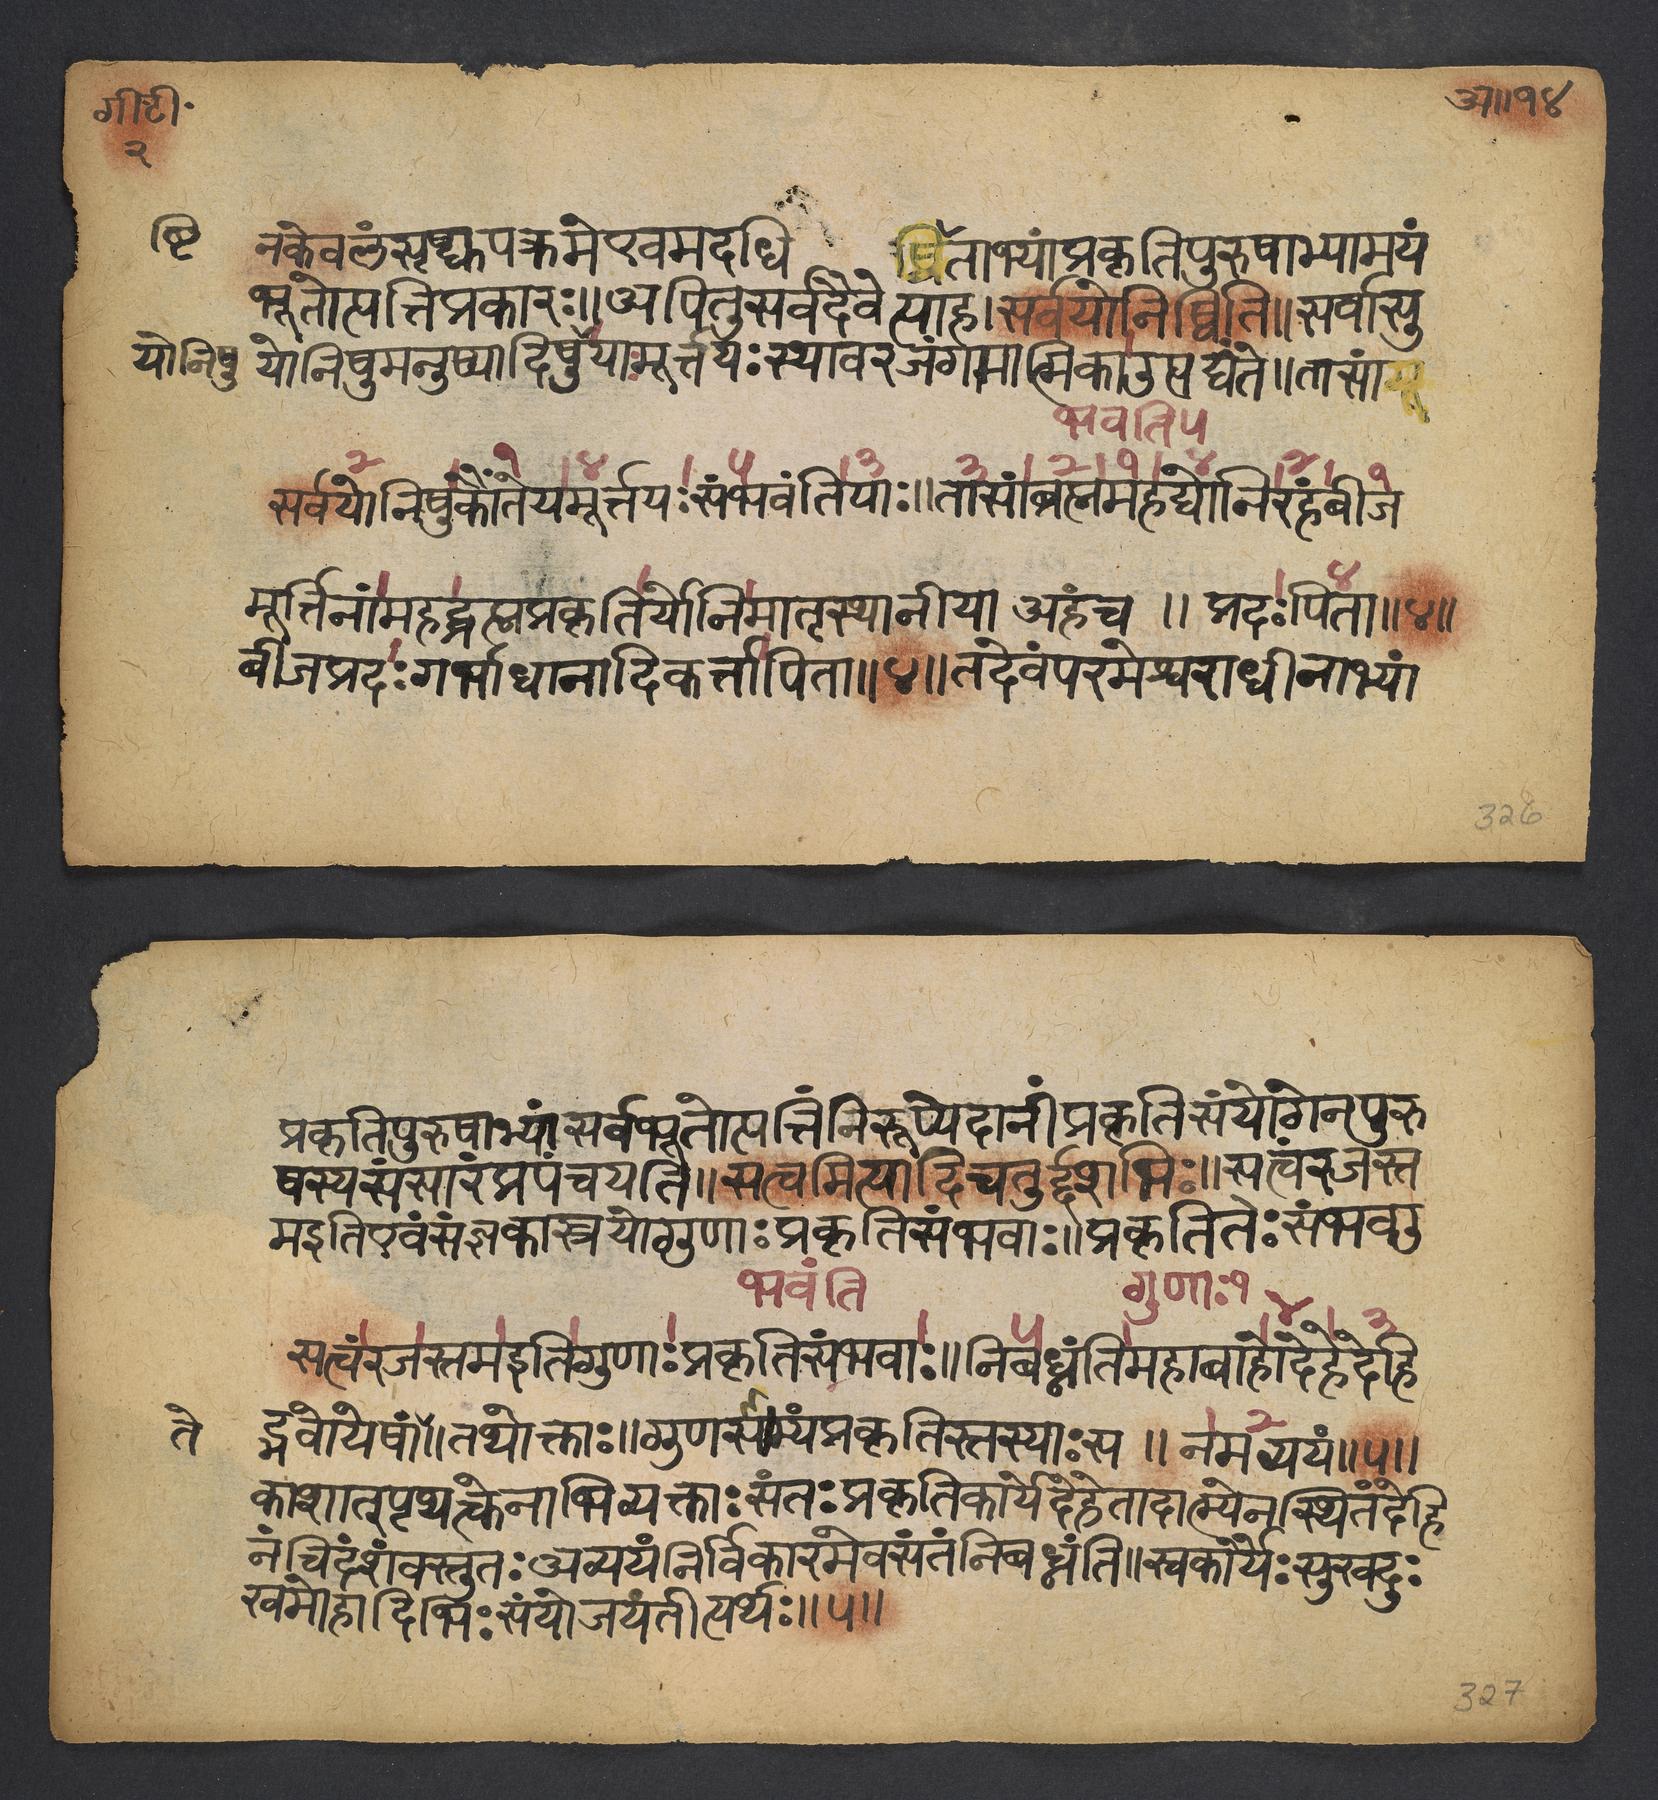 गीटी॰
२
अ॥१४
ष्टि
नकेवलंसृष्ट्युपक्रमेएवमदधि ष्ठिताभ्यांप्रकृतिपुरुषाभ्यामयं
भूतोत्पत्तिप्रकारः॥अपितुसर्वदैवेत्याह।सर्वयोनिष्विति॥सर्वासु
योनिषु योनिषुमनुष्यादिषुयामूर्त्तयःस्थावरजंगमात्मिकाउत्पद्यंते॥तासां
भवति५
२ १ ४ ५ ३ ३ २ १ ४ २ १
सर्वयोनिषुकौंतेयमूर्त्तयःसंभवंतियाः॥तासांब्रह्ममहद्योनिरहंबीज
४
मूर्त्तिनांमहद्ब्रह्मप्रकृतिर्योनिमातृस्थानीया अहंच ॥ प्रदःपिता॥४॥
बीजप्रदःगर्भाधानादिकर्त्तापिता॥४॥तदेवंपरमेश्वराधीनाभ्यां
326
प्रकृतिपुरुषाभ्यांसर्वभूतोत्पत्तिंनिरूप्येदानींप्रकृतिसंयोगेनपुरु
षस्यसंसारंप्रपंचयति॥सत्वमित्यादिचतुर्द्दशभिः॥सत्वंरजस्त
मइतिएवंसंज्ञकास्त्रयोगुणाःप्रकृतिसंभवाः॥प्रकृतितःसंभवउ
भवंति गुणाः१
५ ४ ३
सत्वंरजस्तमइतिगुणाःप्रकृतिसंभवाः॥निबध्नंतिमहाबाहोदेहेदेहि
२
ते द्भवोयेषां॥तथोक्ताः॥गुणसाम्यंप्रकृतिस्तस्याःस ॥ नमव्ययं॥५॥
काशात्पृथक्त्केनाभिव्यक्ताःसंतःप्रकृतिकार्येदेहेतादात्म्येनस्थितंदेहि
नंचिदंशंवस्तुतःअव्ययंनिर्विकारमेवसंतंनिबध्नंति॥स्वकार्यैःसुखदुः
खमोहादिभिःसंयोजयंतीत्यर्थः॥५॥
327